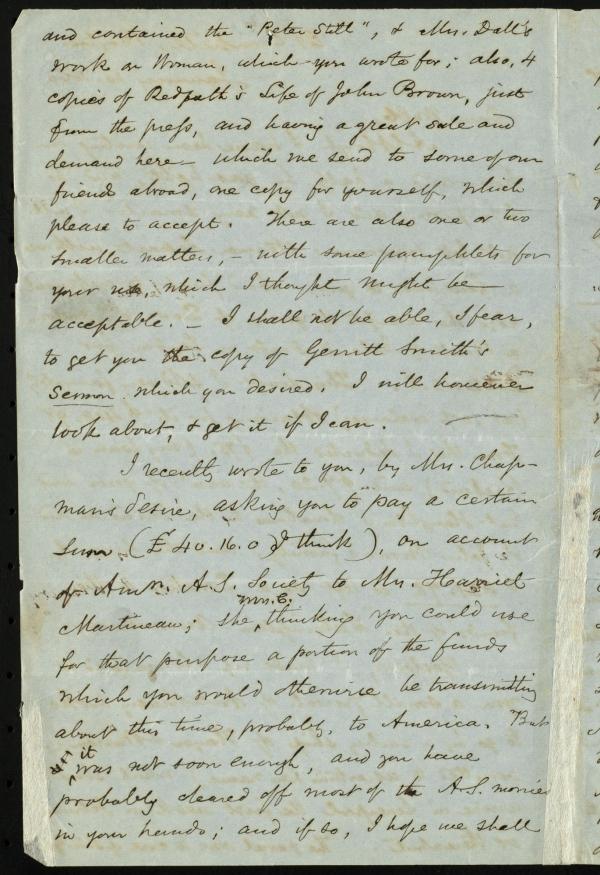 and contained the "Peter Still", & Mrs. Dall's
work on Woman, which you wrote for; also, 4
copies of Redpath's Life of John Brown, just
from the press, and having a great sale and
demand here - which we send to some of our
friends abroad, one copy for yourself, which
please to accept. There are also one or two
smaller matters, - with some pamphlets for
your use, which I thought might be
acceptable. - I shall not be able, I fear,
to get you the copy of Gerritt Smith's
Sermon which you desired. I will however
look about, & get it if I can.
I recently wrote to you, by Mrs. Chap-
man's desire, asking you to pay a certain
sum (£40.16.0 I think), on account
of Amn. A.S. Society to Mrs. Harriet
Martineau; she, Mrs. C. thinking you could use
for that purpose a portion of the funds
which you would otherwise be transmitting
about this time, probably, to America. But
it was not soon enough, and you have
probably cleared off most of the A.S. monies
in your hands; and if so, I hope we shall